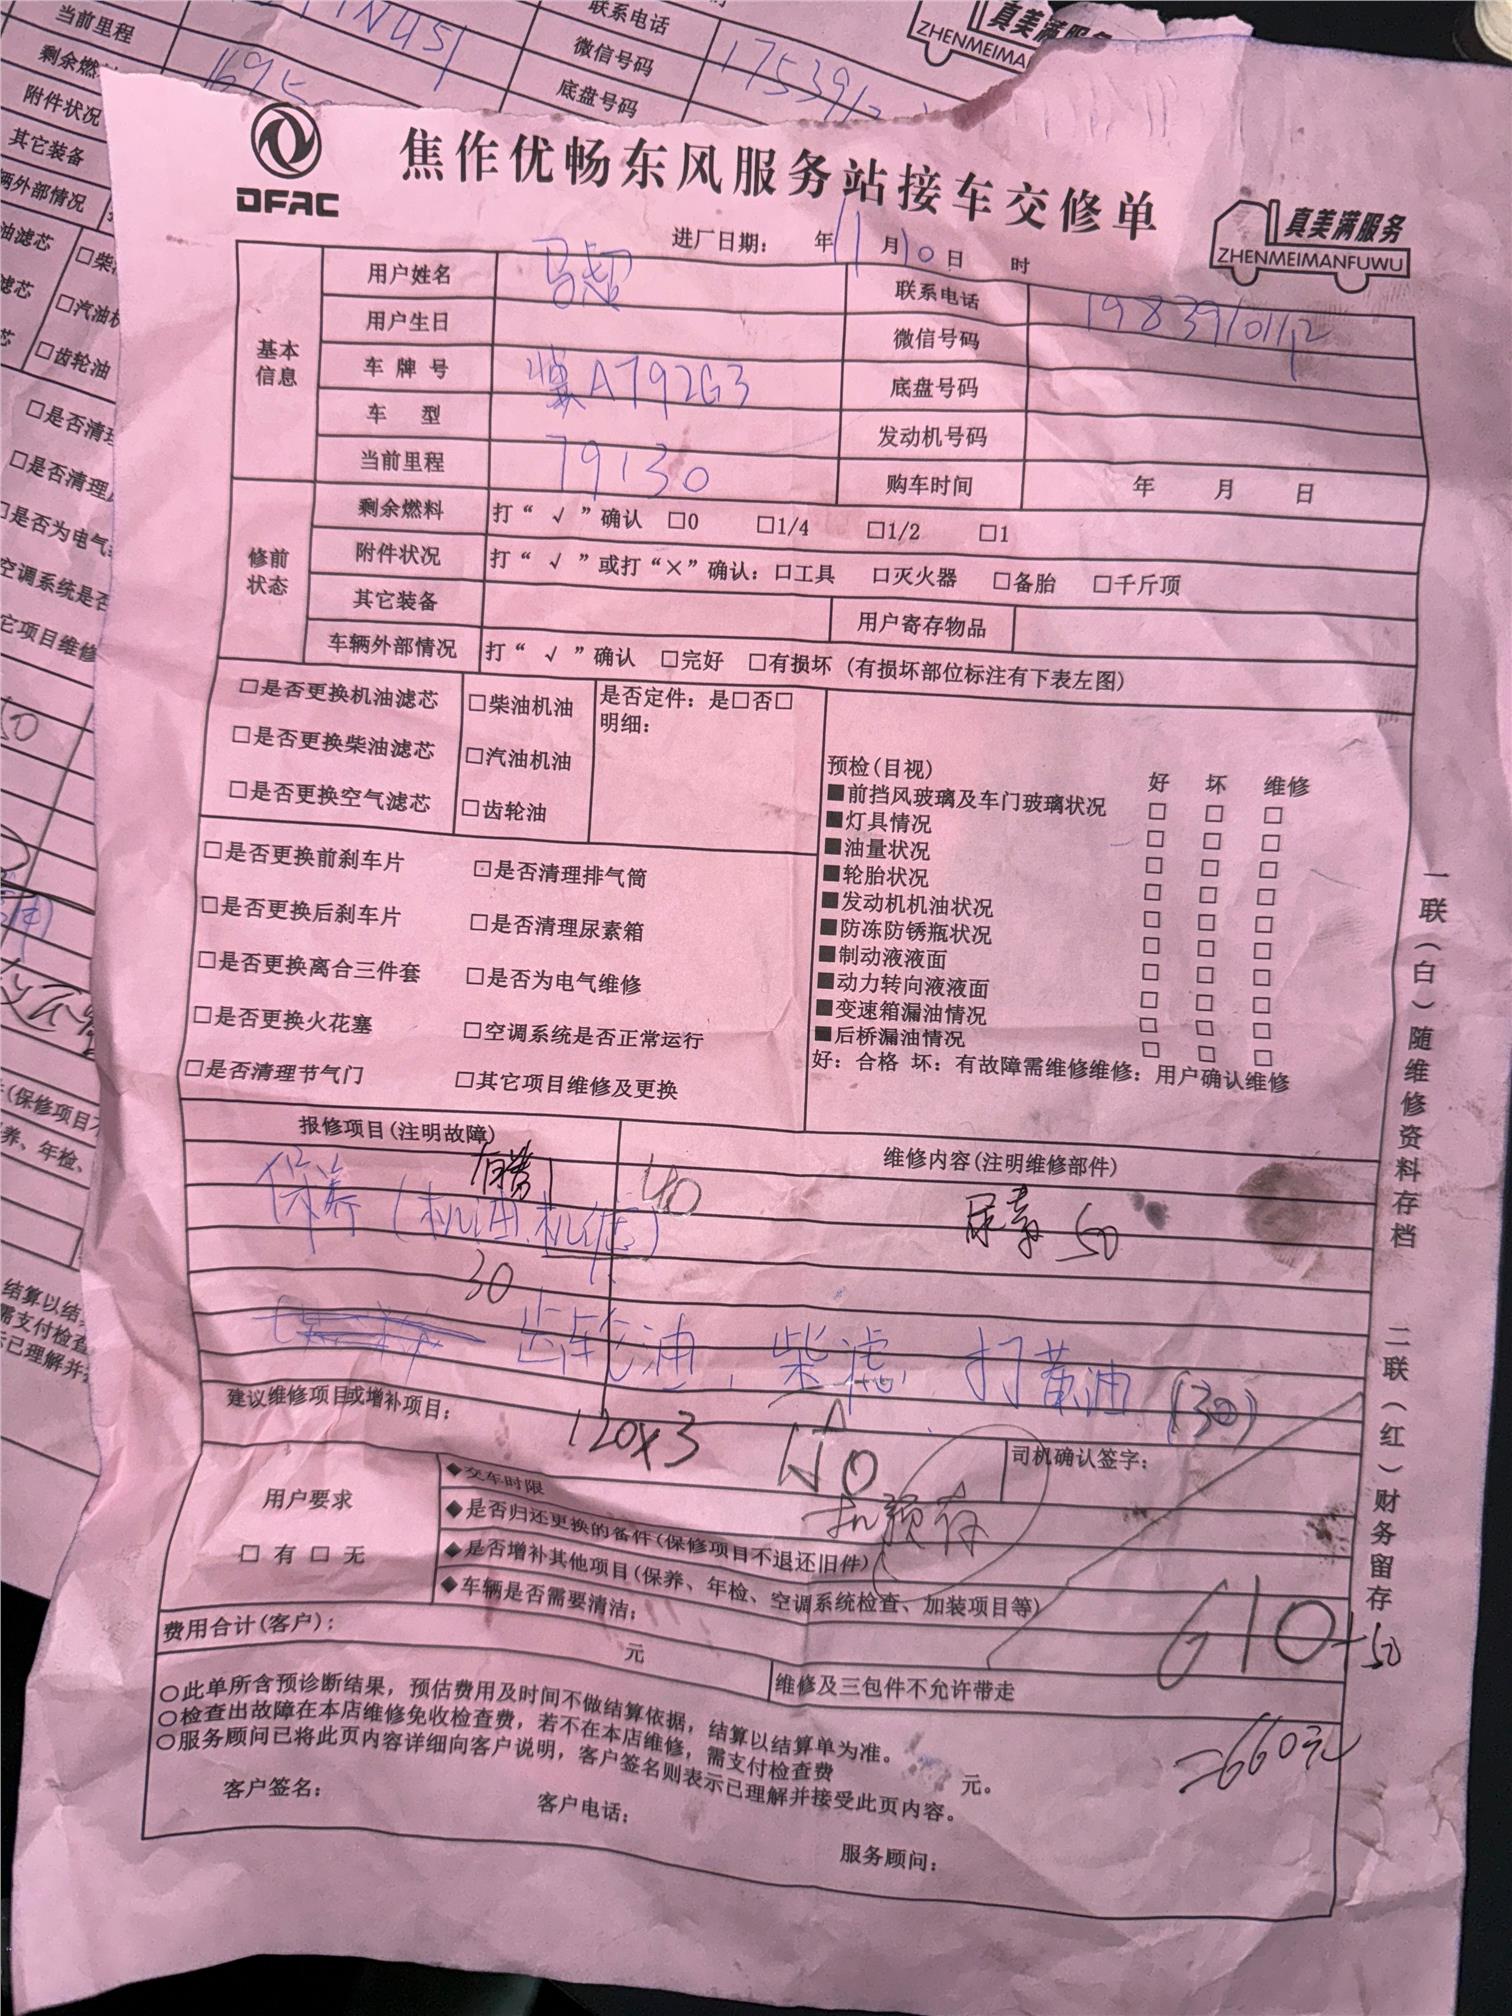 当前里程
剩余燃
附件状况
其它装备
辆外部情况
联系电话
微信号码
底盘号码
真美满服务
ZHENMEIMA
DFAC
焦作优畅东风服务站接车交修单
真美满服务
ZHENMEIMANFUWU
进厂日期： 年 11 月 10 日 时
基本信息
用户姓名 马超 联系电话 19839101112
用户生日 微信号码
车牌号 冀A792G3 底盘号码
车型 发动机号码
当前里程 79130 购车时间 年 月 日
修前状态
剩余燃料 打“√”确认 □0 □1/4 □1/2 □1
附件状况 打“√”或打“×”确认：□工具 □灭火器 □备胎 □千斤顶
其它装备 用户寄存物品
车辆外部情况 打“√”确认 □完好 □有损坏（有损坏部位标注有下表左图）
□是否更换机油滤芯 □柴油机油 是否定件：是□否□
明细：
□是否更换柴油滤芯 □汽油机油
□是否更换空气滤芯 □齿轮油
□是否更换前刹车片 □是否清理排气筒
□是否更换后刹车片 □是否清理尿素箱
□是否更换离合三件套 □是否为电气维修
□是否更换火花塞 □空调系统是否正常运行
□是否清理节气门 □其它项目维修及更换
预检(目视) 好 坏 维修
■前挡风玻璃及车门玻璃状况 □ □ □
■灯具情况 □ □ □
■油量状况 □ □ □
■轮胎状况 □ □ □
■发动机机油状况 □ □ □
■防冻防锈瓶状况 □ □ □
■制动液液面 □ □ □
■动力转向液液面 □ □ □
■变速箱漏油情况 □ □ □
■后桥漏油情况 □ □ □
好：合格 坏：有故障需维修维修：用户确认维修
报修项目(注明故障) 维修内容(注明维修部件)
保养（机油.机滤） 40 尿素 50
30
齿轮油.柴滤.打黄油（30）
建议维修项目或增补项目：
120x3 140
司机确认签字：
用户要求
□ 有 □ 无
◆交车时限
◆是否归还更换的备件(保修项目不退还旧件)
◆是否增补其他项目(保养、年检、空调系统检查、加装项目等)
◆车辆是否需要清洁；
费用合计(客户)： 元
610+50
维修及三包件不允许带走
=660元
○此单所含预诊断结果，预估费用及时间不做结算依据，结算以结算单为准。
○检查出故障在本店维修免收检查费，若不在本店维修，需支付检查费 元。
○服务顾问已将此页内容详细向客户说明，客户签名则表示已理解并接受此页内容。
客户签名： 客户电话： 服务顾问：
一联（白）随维修资料存档 二联（红）财务留存